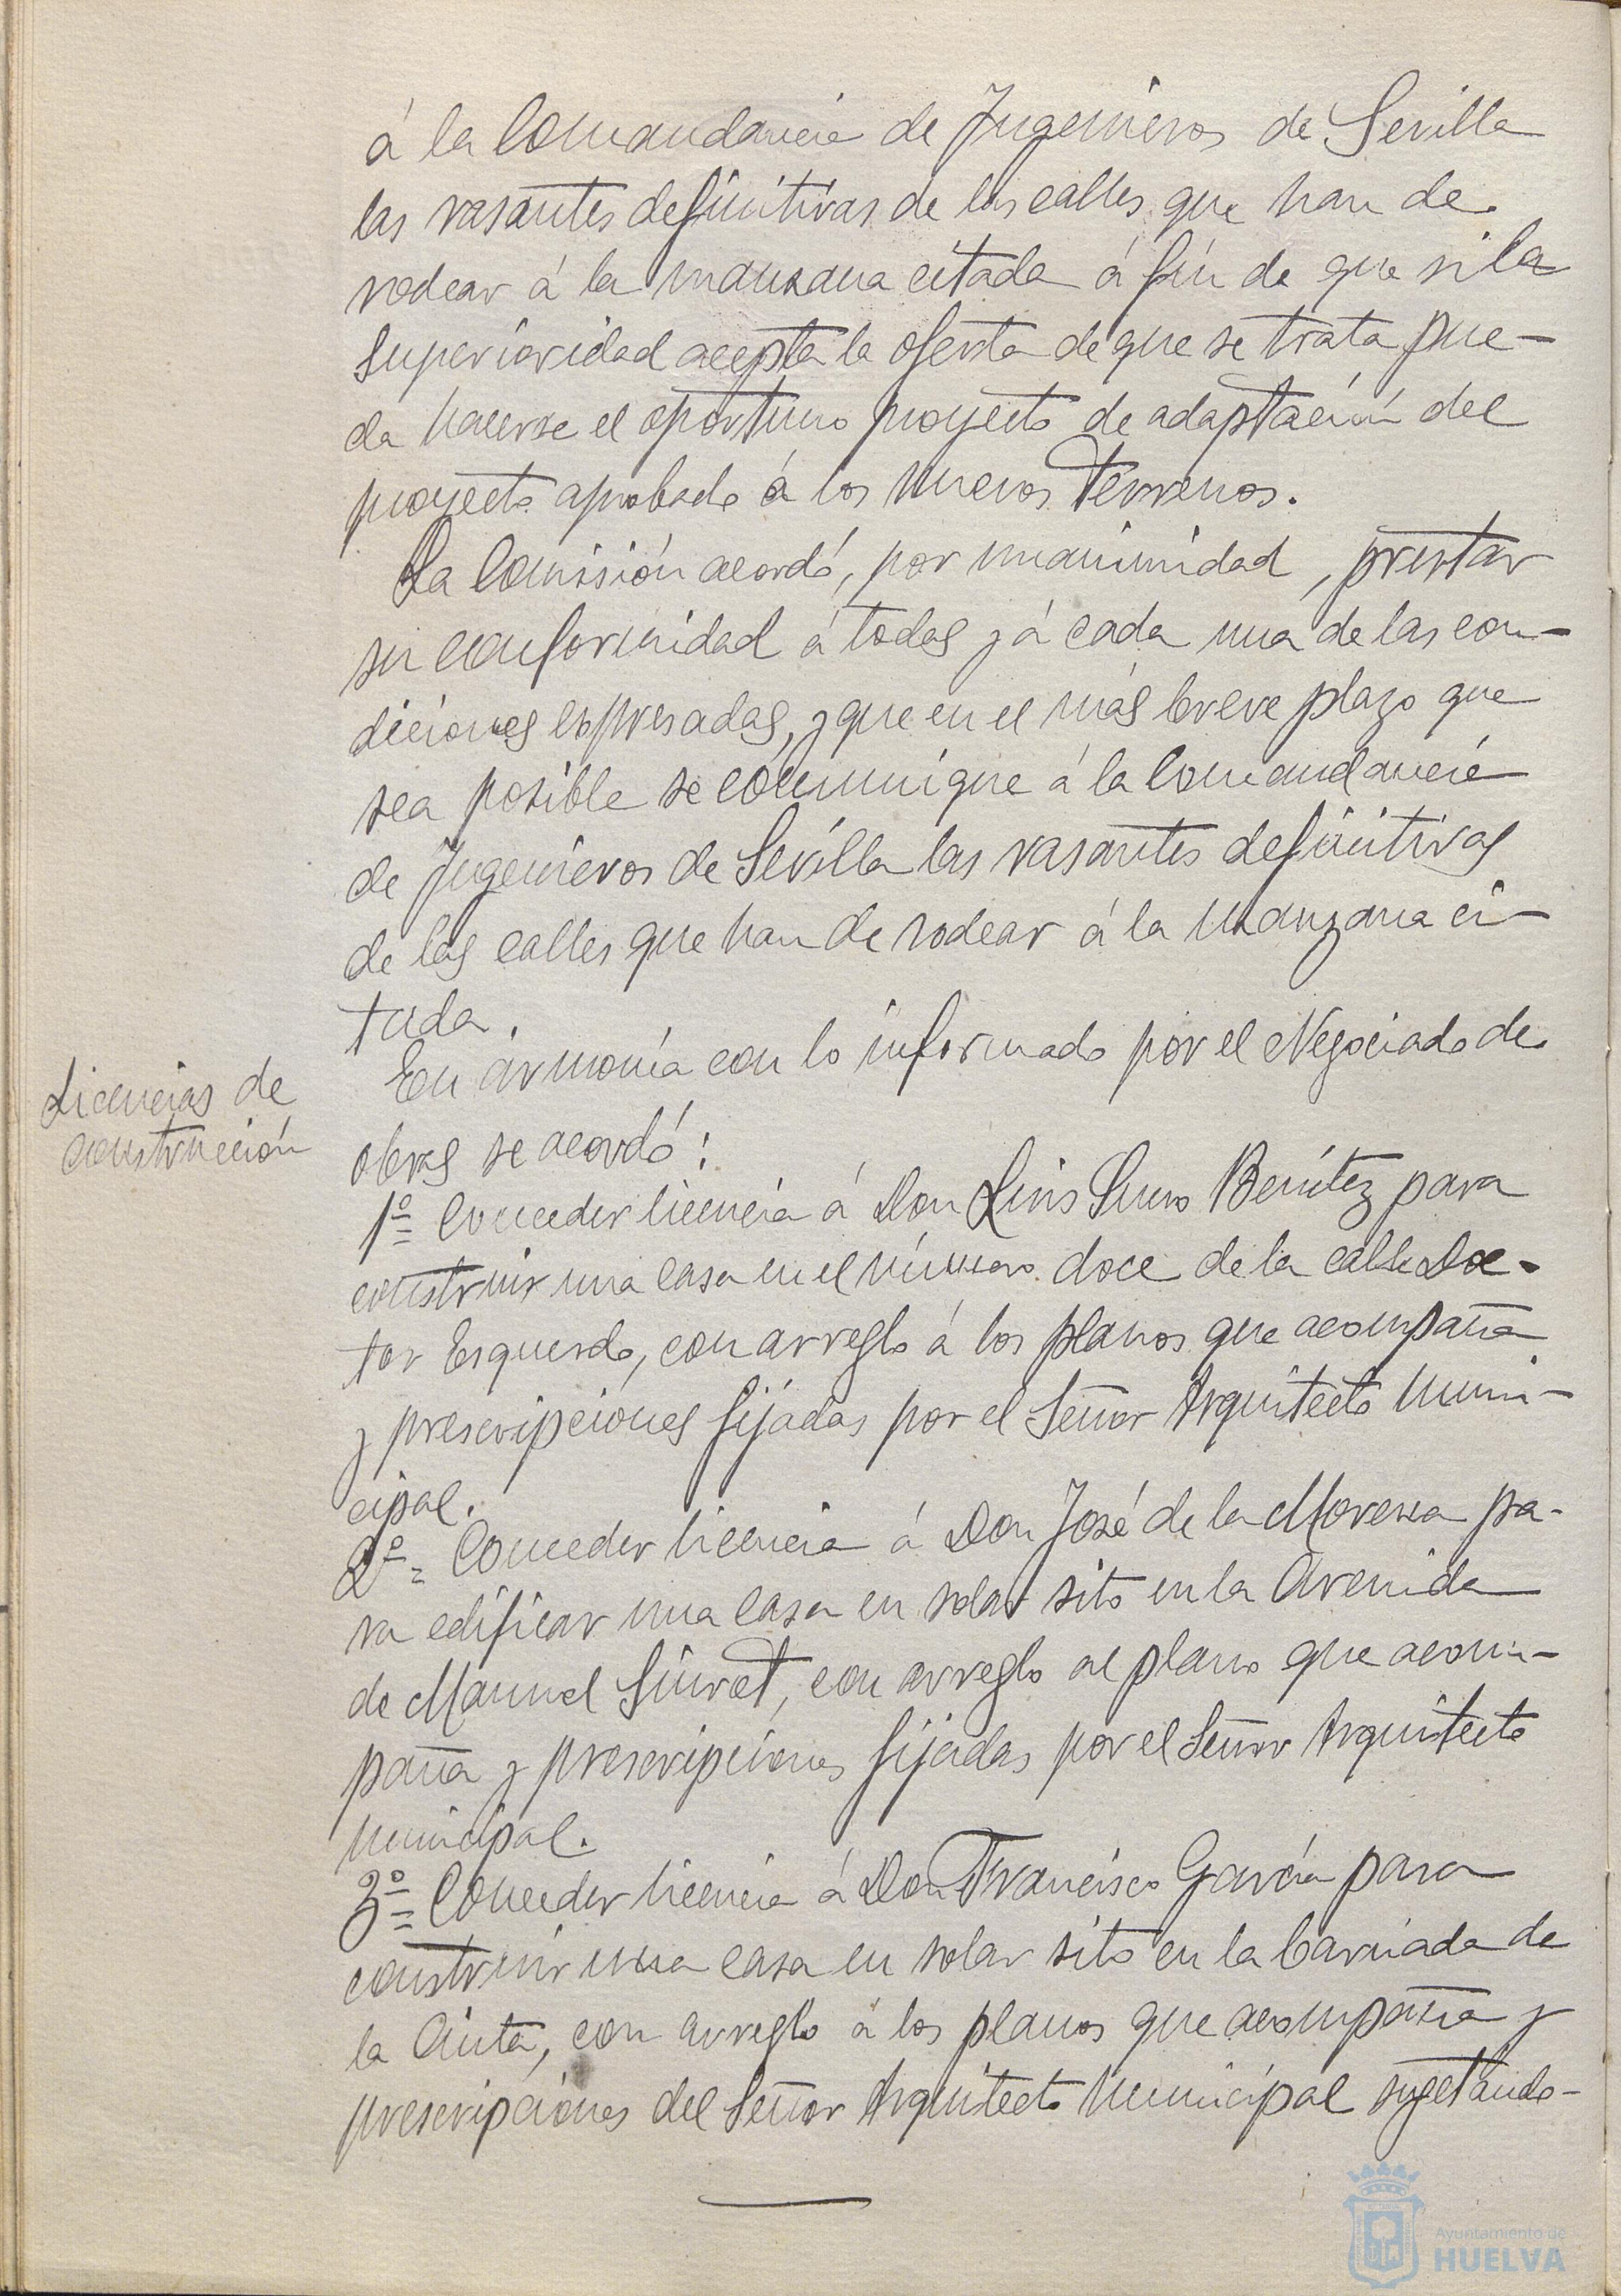 á la Comandancia de Ingenieros de Sevilla
las rasantes definitivas de las calles que han de
rodear á la manzana citada á fin de que si la
Superioridad acepta la oferta de que se trata pue-
da hacerse el oportuno proyecto de adaptación del
proyecto aprobado á los nuevos terrenos.
La Comisión acordó, por unanimidad, prestar
su conformidad á todas y á cada una de las con-
diciones expresadas, y que en el más breve plazo que
sea posible se comunique á la Comandancia
de Ingenieros de Sevilla las rasantes definitivas
de las calles que han de rodear á la manzana ci-
tada.
Licencias de
construcción
En armonía con lo informado por el Negociado de
obras se acordó:
1º= Conceder licencia á Don Luis Suero Benítez para
construir una casa en el número doce de la calle Doc-
tor Esquerdo, con arreglo á los planos que acompaña
y prescripciones fijadas por el Señor Arquitecto Muni-
cipal.
2º= Conceder licencia á Don José de la Morena pa-
ra edificar una casa en solar sito en la Avenida
de Manuel Siurot, con arreglo al plano que acom-
paña y prescripciones fijadas por el Señor Arquitecto
Municipal.
3º= Conceder licencia á Don Francisco García para
construir una casa en solar sito en la barriada de
la Cinta, con arreglo á los planos que acompaña y
prescripciones del Señor Arquitecto Municipal sugetándo-
Ayuntamiento de
HUELVA